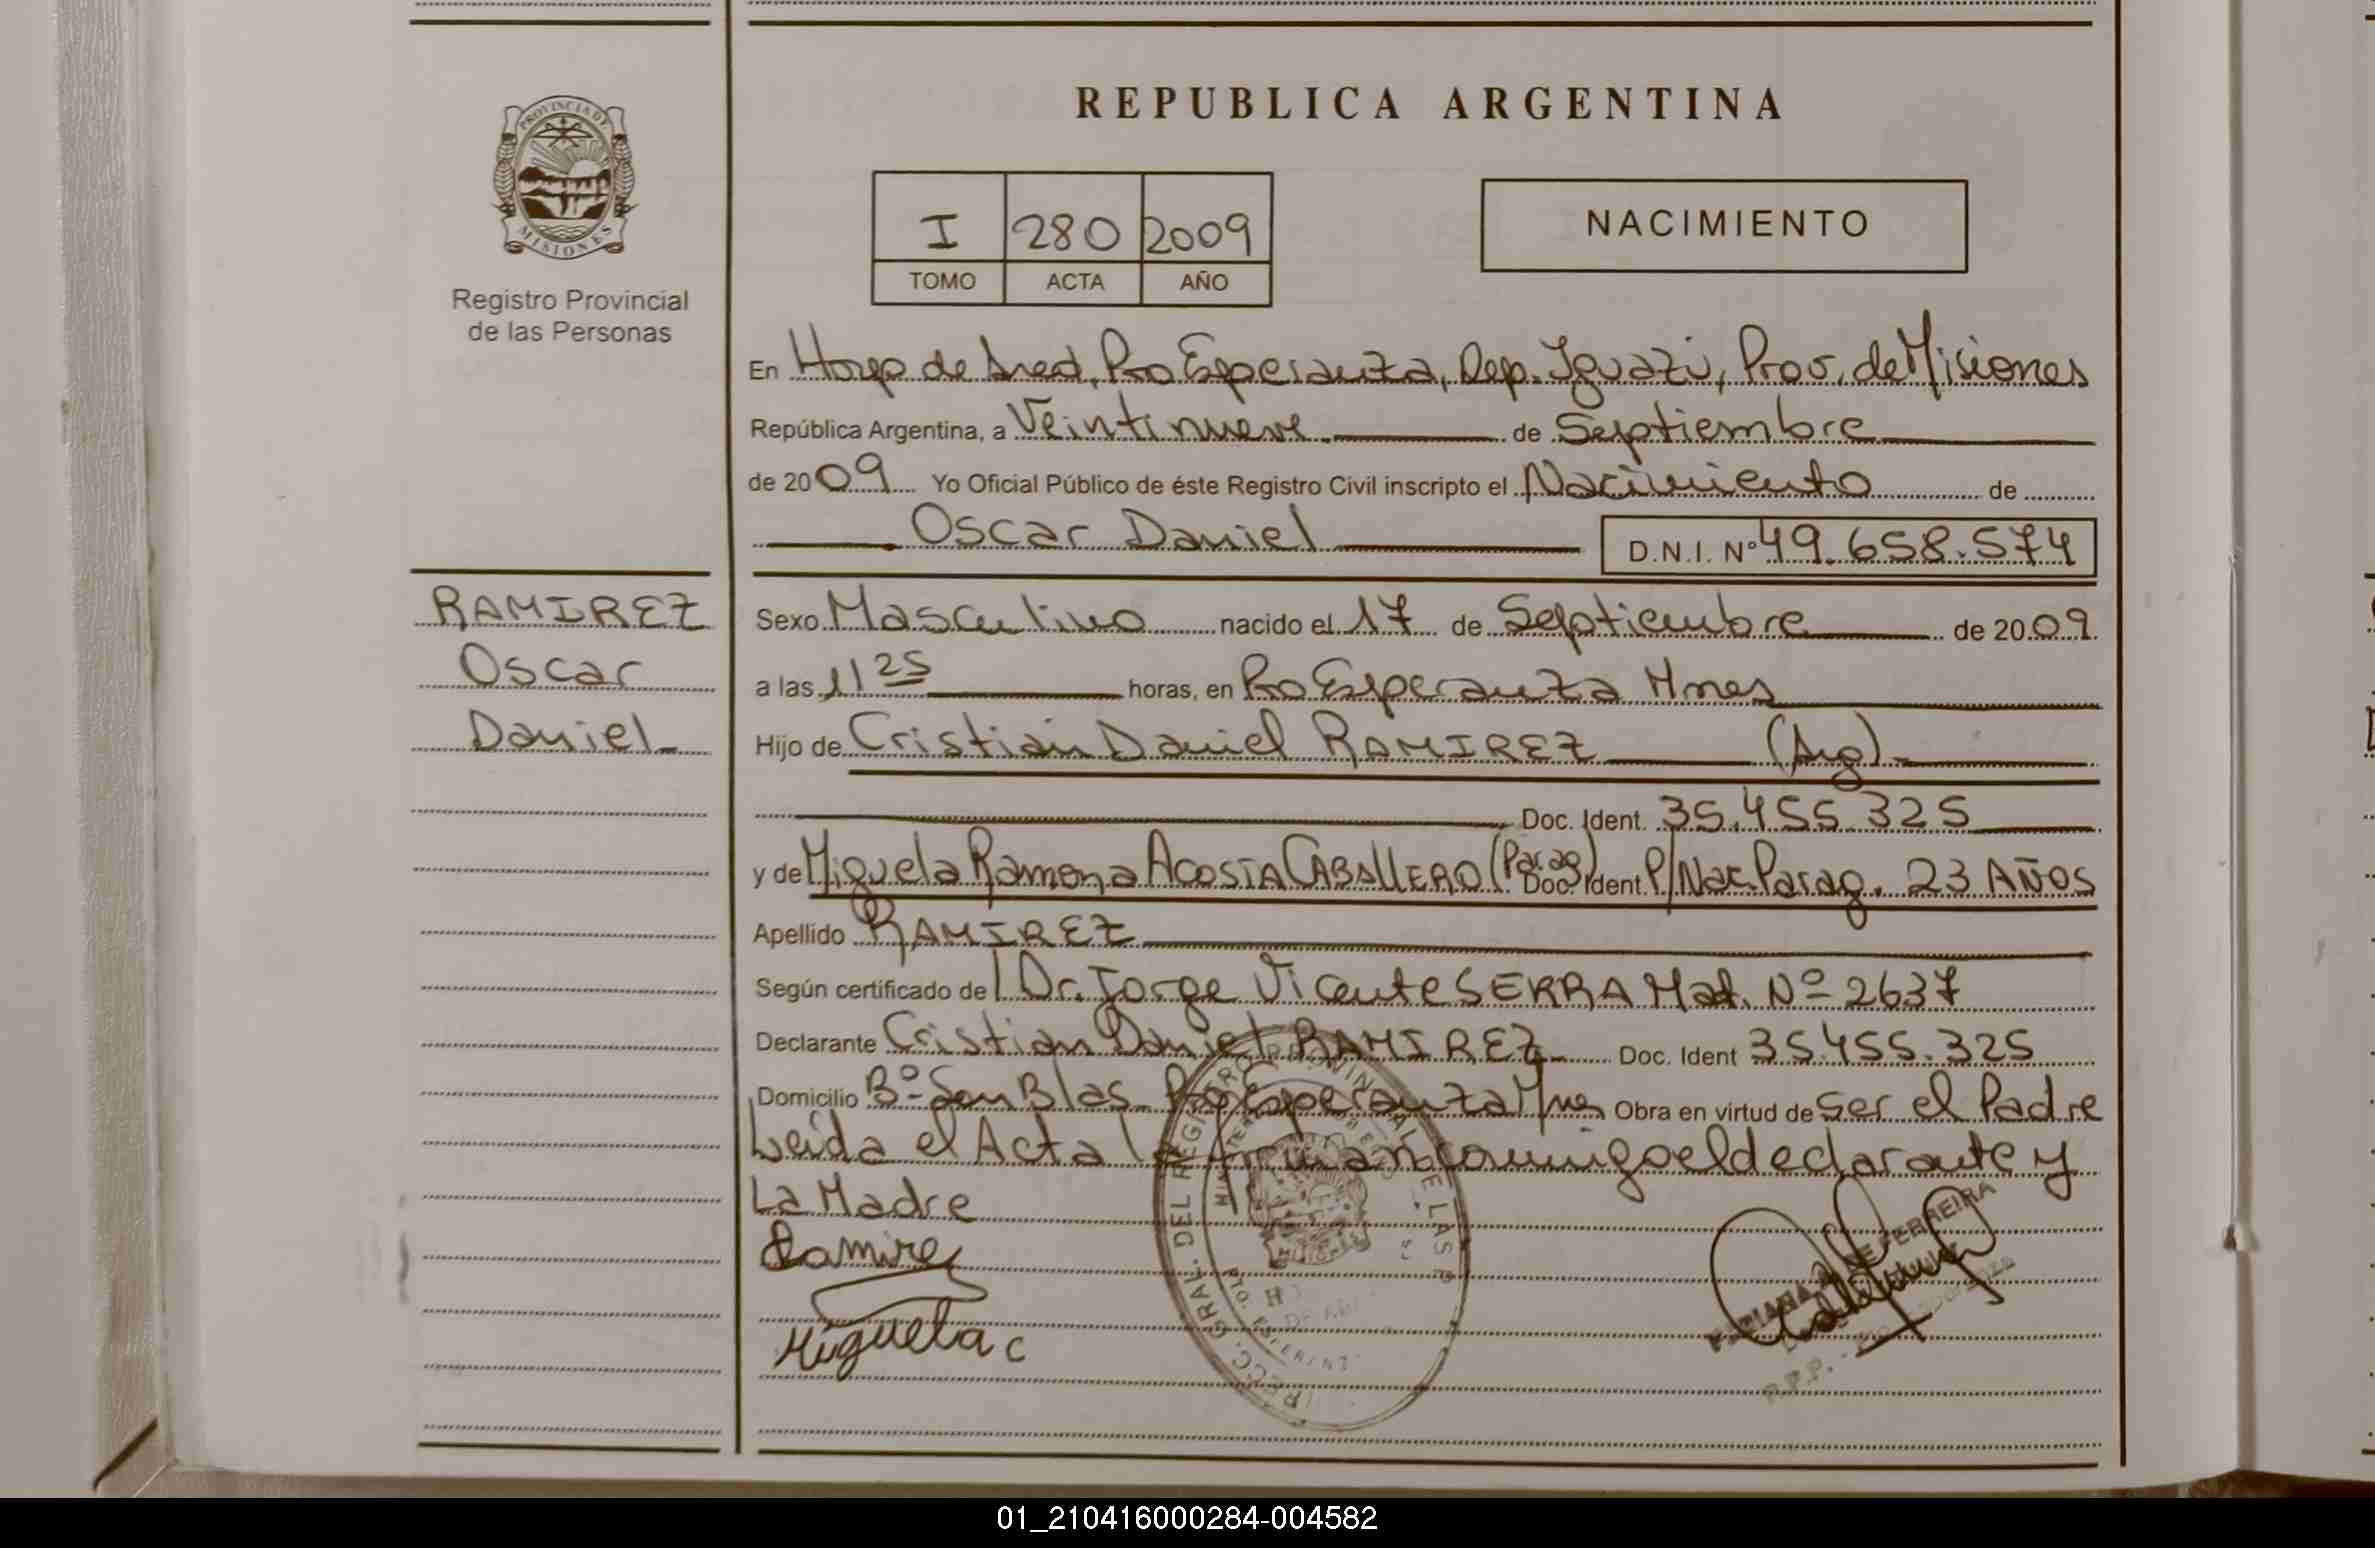 REPUBLICA ARGENTINA
PROVINCIA DE
MISIONES
Registro Provincial
de las Personas
I 280 2009
TOMO ACTA AÑO
NACIMIENTO
En Hosp de Area, Pto Esperanza, Dep. Iguazú, Prov. de Misiones
República Argentina, a Veintinueve de Septiembre
de 2009 Yo Oficial Público de éste Registro Civil inscripto el Nacimiento de
Oscar Daniel D.N.I. Nº 49.658.574
RAMIREZ
Oscar
Daniel
Sexo Masculino nacido el 17 de Septiembre de 2009
a las 11 25 horas, en Pto Esperanza Mnes
Hijo de Cristian Daniel RAMIREZ (Arg)
Doc. Ident. 35.455.325
y de Miguela Ramona ACOSTA CABALLERO (Parag) Doc. Ident P/Nac Parag. 23 AÑOS
Apellido RAMIREZ
Según certificado del Dr. Jorge Vicente SERRA Mat. Nº 2637
Declarante Cristian Daniel RAMIREZ Doc. Ident 35.455.325
Domicilio Bº San Blas Pto Esperanza Mnes Obra en virtud de Ser el Padre
Leida el Acta la firman conmigo el declarante y
La Madre
Ramirez
Miguela c
DEL REGISTRO PROVINCIAL DE LAS P
FERREIRA
R.P.P.
01_210416000284-004582